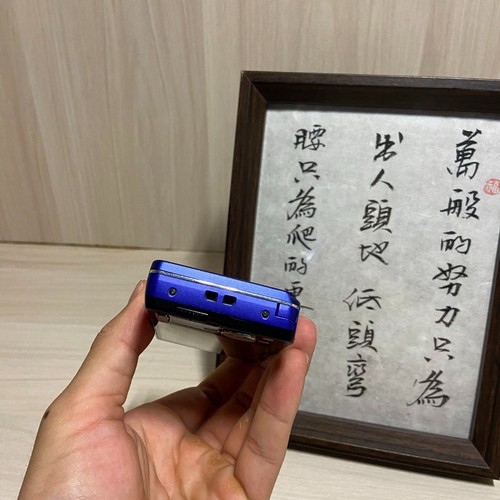 萬般的努力只為
出人頭地 低頭彎
腰只為爬的更
福